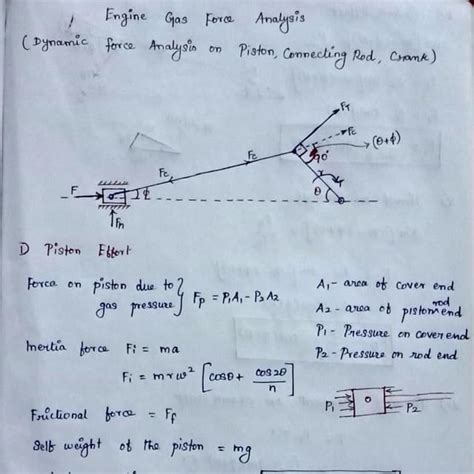 Engine Gas Force Analysis
(Dynamic force Analysis on Piston, Connecting Rod, Crank)
FT
Fc
(θ+ϕ)
90°
Fc
Fc
F
ϕ
θ
r
Fn
1) Piston Effort
Force on piston due to gas pressure } Fp = P1A1 - P2A2
A1 - area of cover end
A2 - area of piston rod end
P1 - Pressure on cover end
P2 - Pressure on rod end
Inertia force Fi = ma
Fi = mrω² [cosθ + cos2θ/n]
P1
P2
Frictional force = Ff
Self weight of the piston = mg